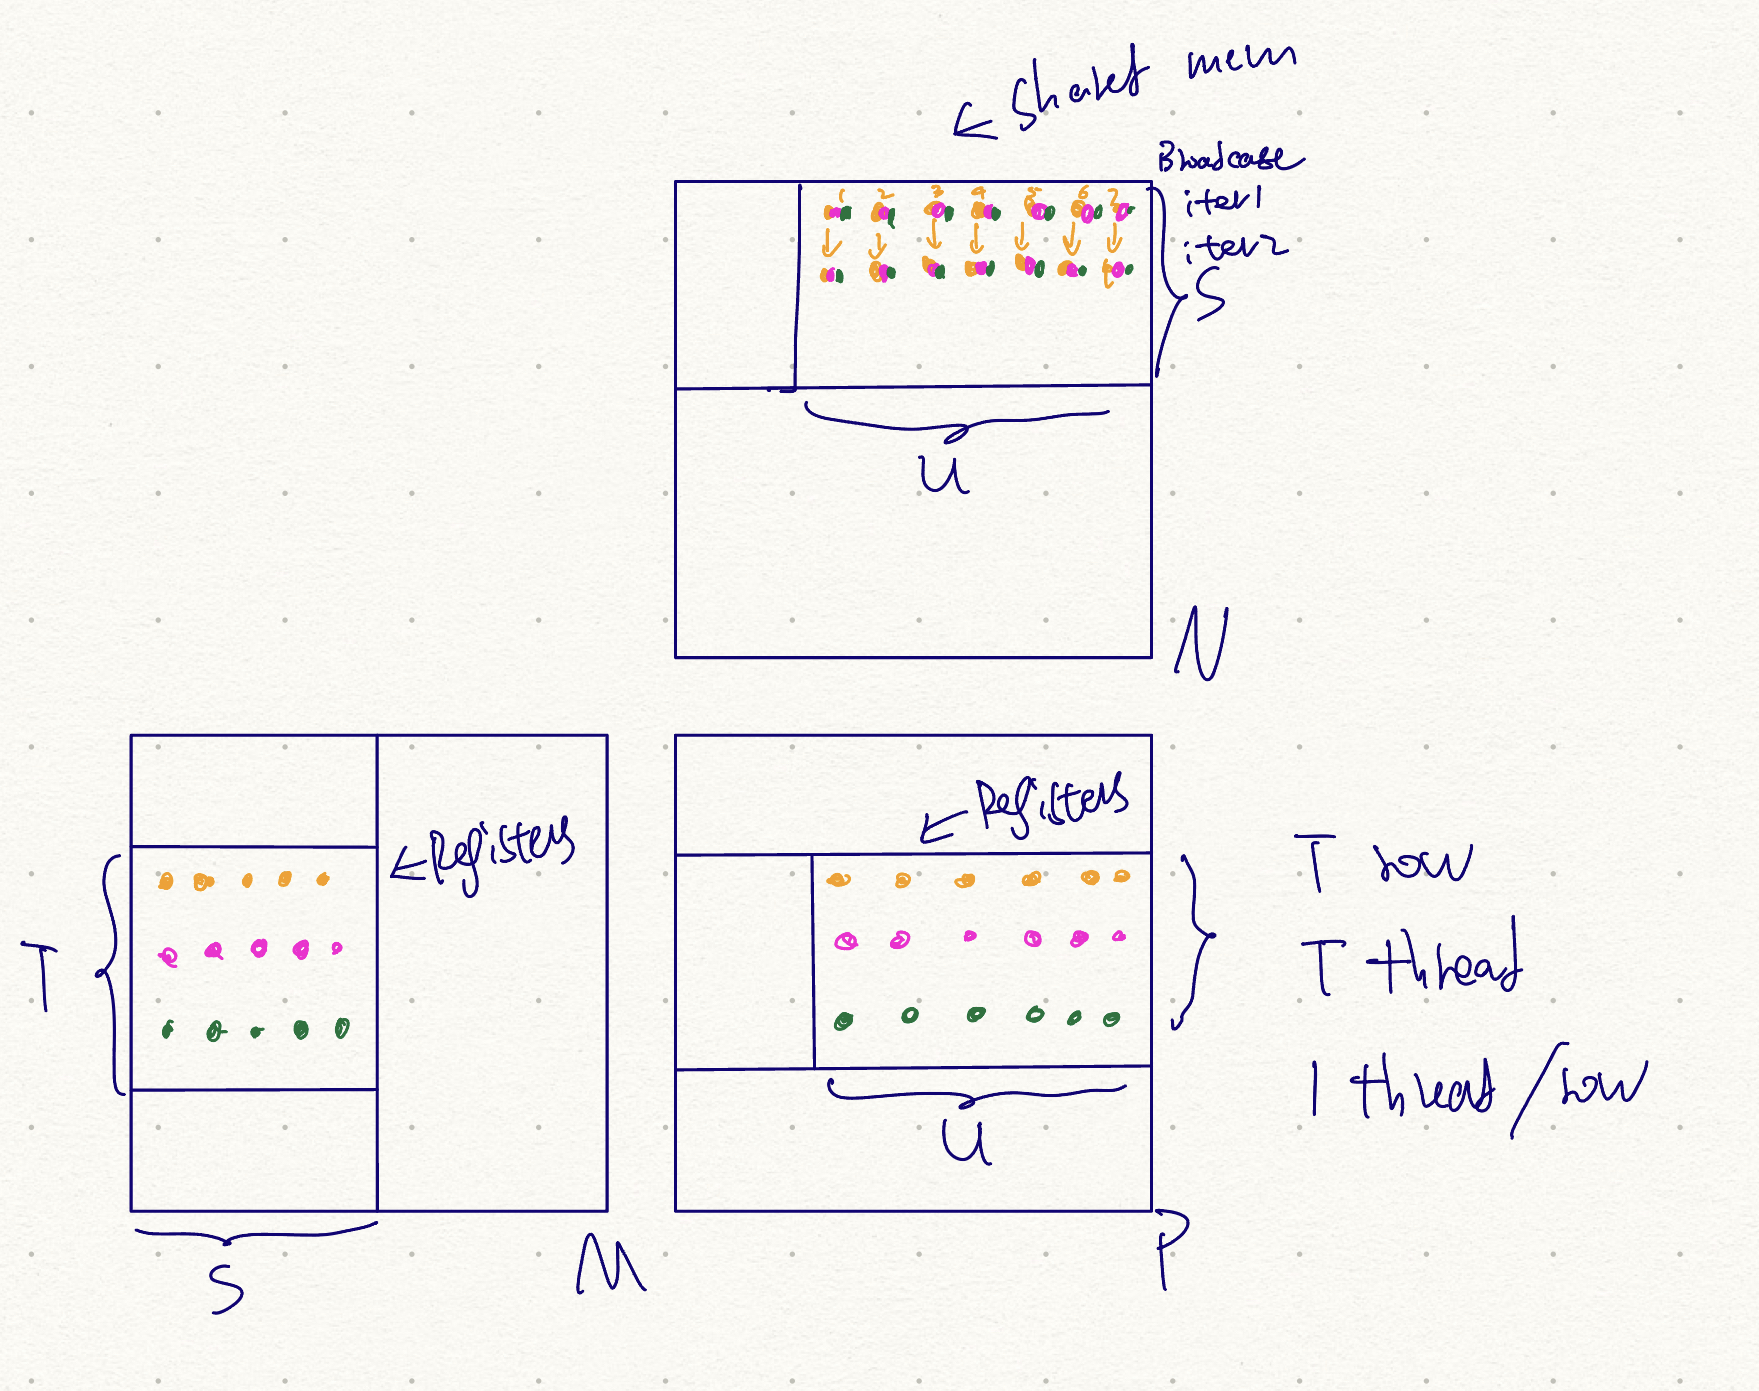 Shared mem
Broadcase
iter1
iter2
1 2 3 4 5 6 7
S
U
N
Registers
Registers
T
T row
T thread
1 thread/row
U
S
M
P